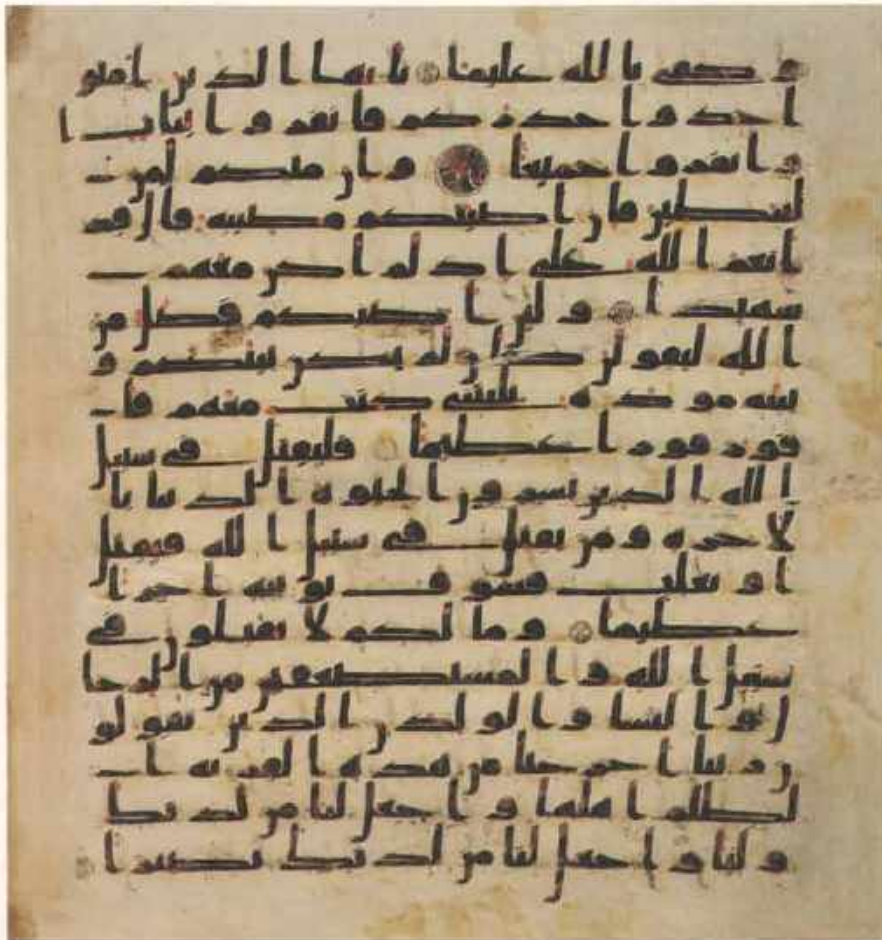 و كفى بالله عليما يايها الذين امنو
ا خذوا حذركم فانفروا ثبات ا
و انفروا جميعا و ان منكم لمن
ليبطين فان اصبتكم مصيبة قال قد
انعم الله علي اذ لم اكن معهم
شهيدا و لين اصبكم فضل من
الله ليقولن كان لم يكن بينكم و
بينه مودة يليتني كنت معهم فا
فوز فوزا عظيما فليقتل في سبيل
الله الذين يشرون الحيوة الدنيا با
لاخرة و من يقتل في سبيل الله فيقتل
او يغلب فسوف نوتيه اجرا
عظيما و ما لكم لا تقتلون في
سبيل الله و المستضعفين من الرجا
ل و النسا و الولدن الذين يقولو
ن ربنا اخرجنا من هذه القرية ا
لظلم اهلها و اجعل لنا من لدنك
وليا و اجعل لنا من لدنك نصيرا